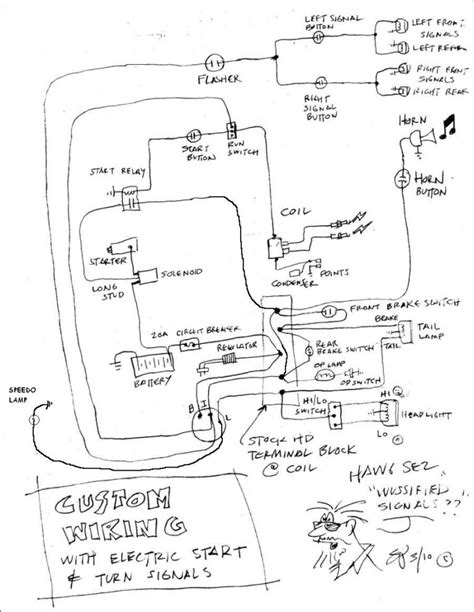 LEFT SIGNAL
BUTTON
LEFT FRONT
SIGNALS
LEFT REAR
FLASHER
RIGHT FRONT
SIGNALS
RIGHT REAR
RIGHT
SIGNAL
BUTTON
HORN
START
BUTTON
RUN
SWITCH
START RELAY
HORN
BUTTON
COIL
STARTER
SOLENOID
LONG
STUD
POINTS
CONDENSER
FRONT BRAKE SWITCH
BRAKE
20A CIRCUIT BREAKER
TAIL
LAMP
REAR
BRAKE SWITCH
REGULATOR
TAIL
OP LAMP
OP SWITCH
BATTERY
SPEEDO
LAMP
B I L
HI
HI/LO
SWITCH
HEADLIGHT
LO
STOCK HD
TERMINAL BLOCK
@ COIL
HAWG SEZ
"WUSSIFIED
SIGNALS??
CUSTOM
WIRING
WITH ELECTRIC START
& TURN SIGNALS
3/10 ©